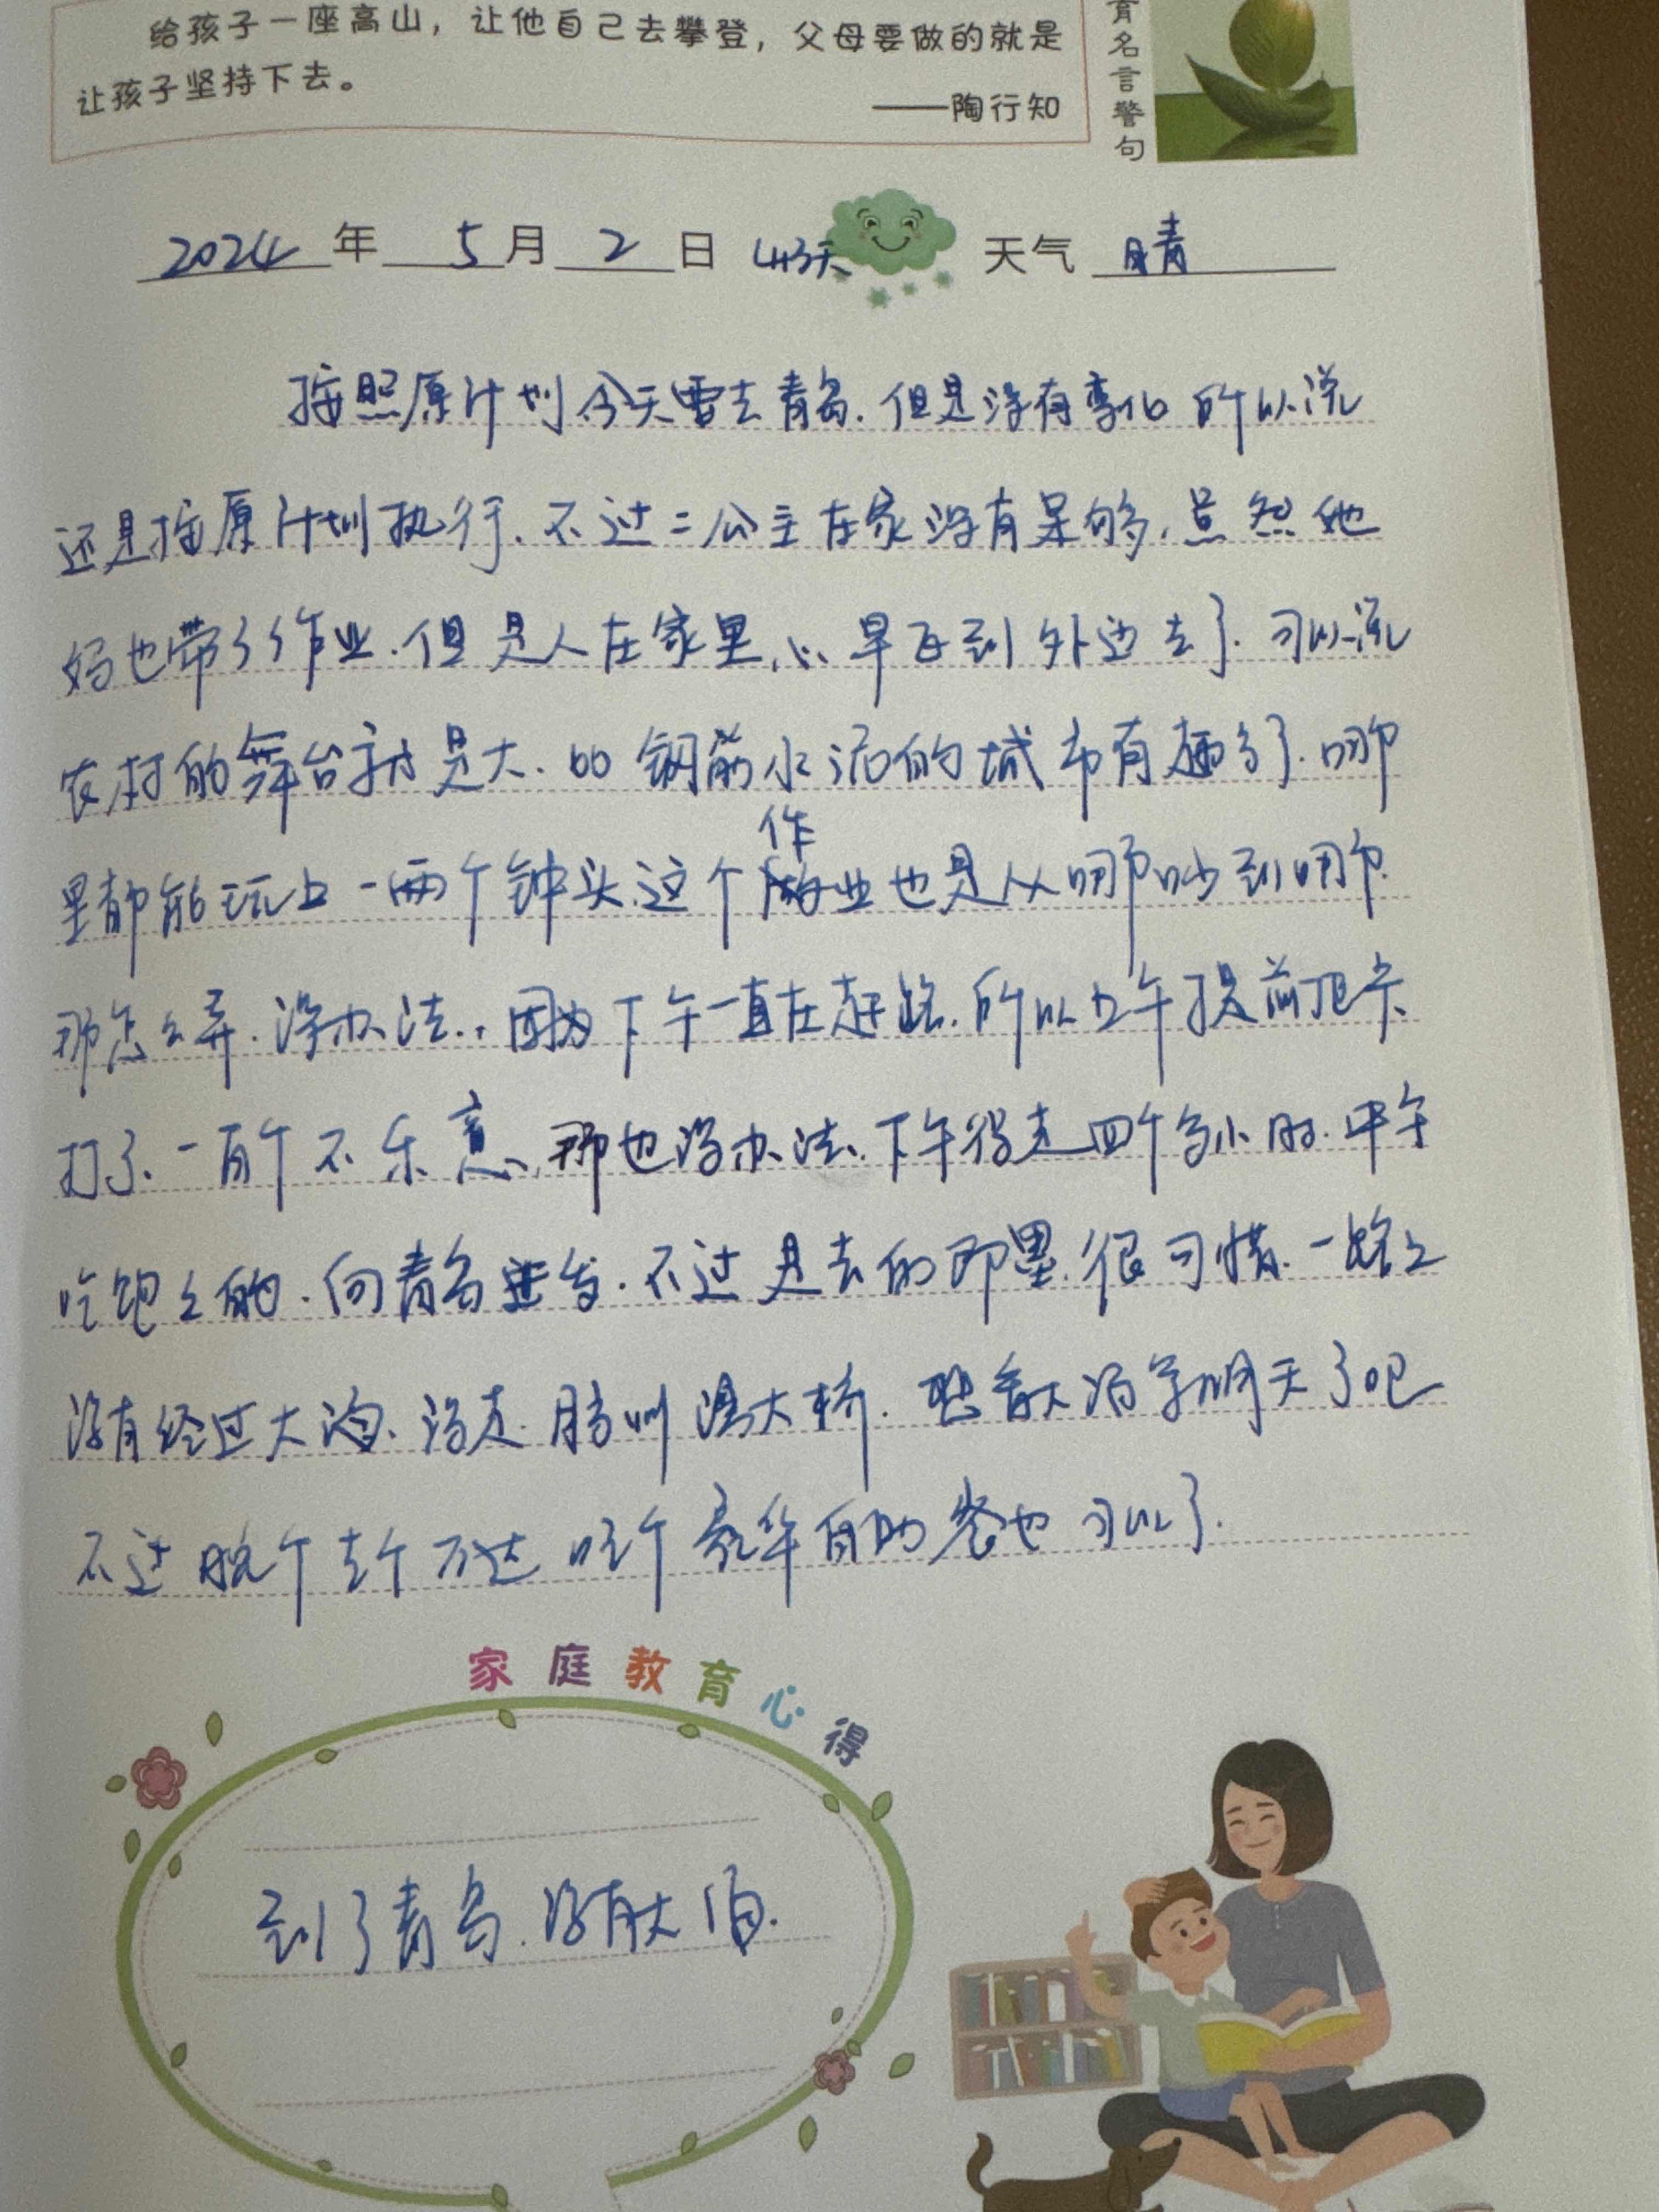 给孩子一座高山，让他自己去攀登，父母要做的就是
让孩子坚持下去。
——陶行知
育名言警句
2024 年 5 月 2 日 443天 天气 晴
按照原计划今天要去青岛.但是没有变化 所以说
还是按原计划执行.不过二公主在家没有呆够.虽然她
妈也带了作业.但是人在家里,心早已到外边去了.可以说
农村的舞台就是大.比钢筋水泥的城市有趣多了.哪
里都能玩上一两个钟头.这个作业也是从哪吵到哪.
那怎么弄.没办法..因为下午一直在赶路.所以上午提前把卡
打了.一百个不乐意,那也没办法.下午得走四个多小时.中午
吃饱之的.向青岛进发.不过是去的即墨.很可惜.一路上
没有经过大海.没走胶州湾大桥.明天了吧
不过晚个去个万达吃个豪华自助餐也可以了.
家庭教育心得
到了青岛.没有大海.